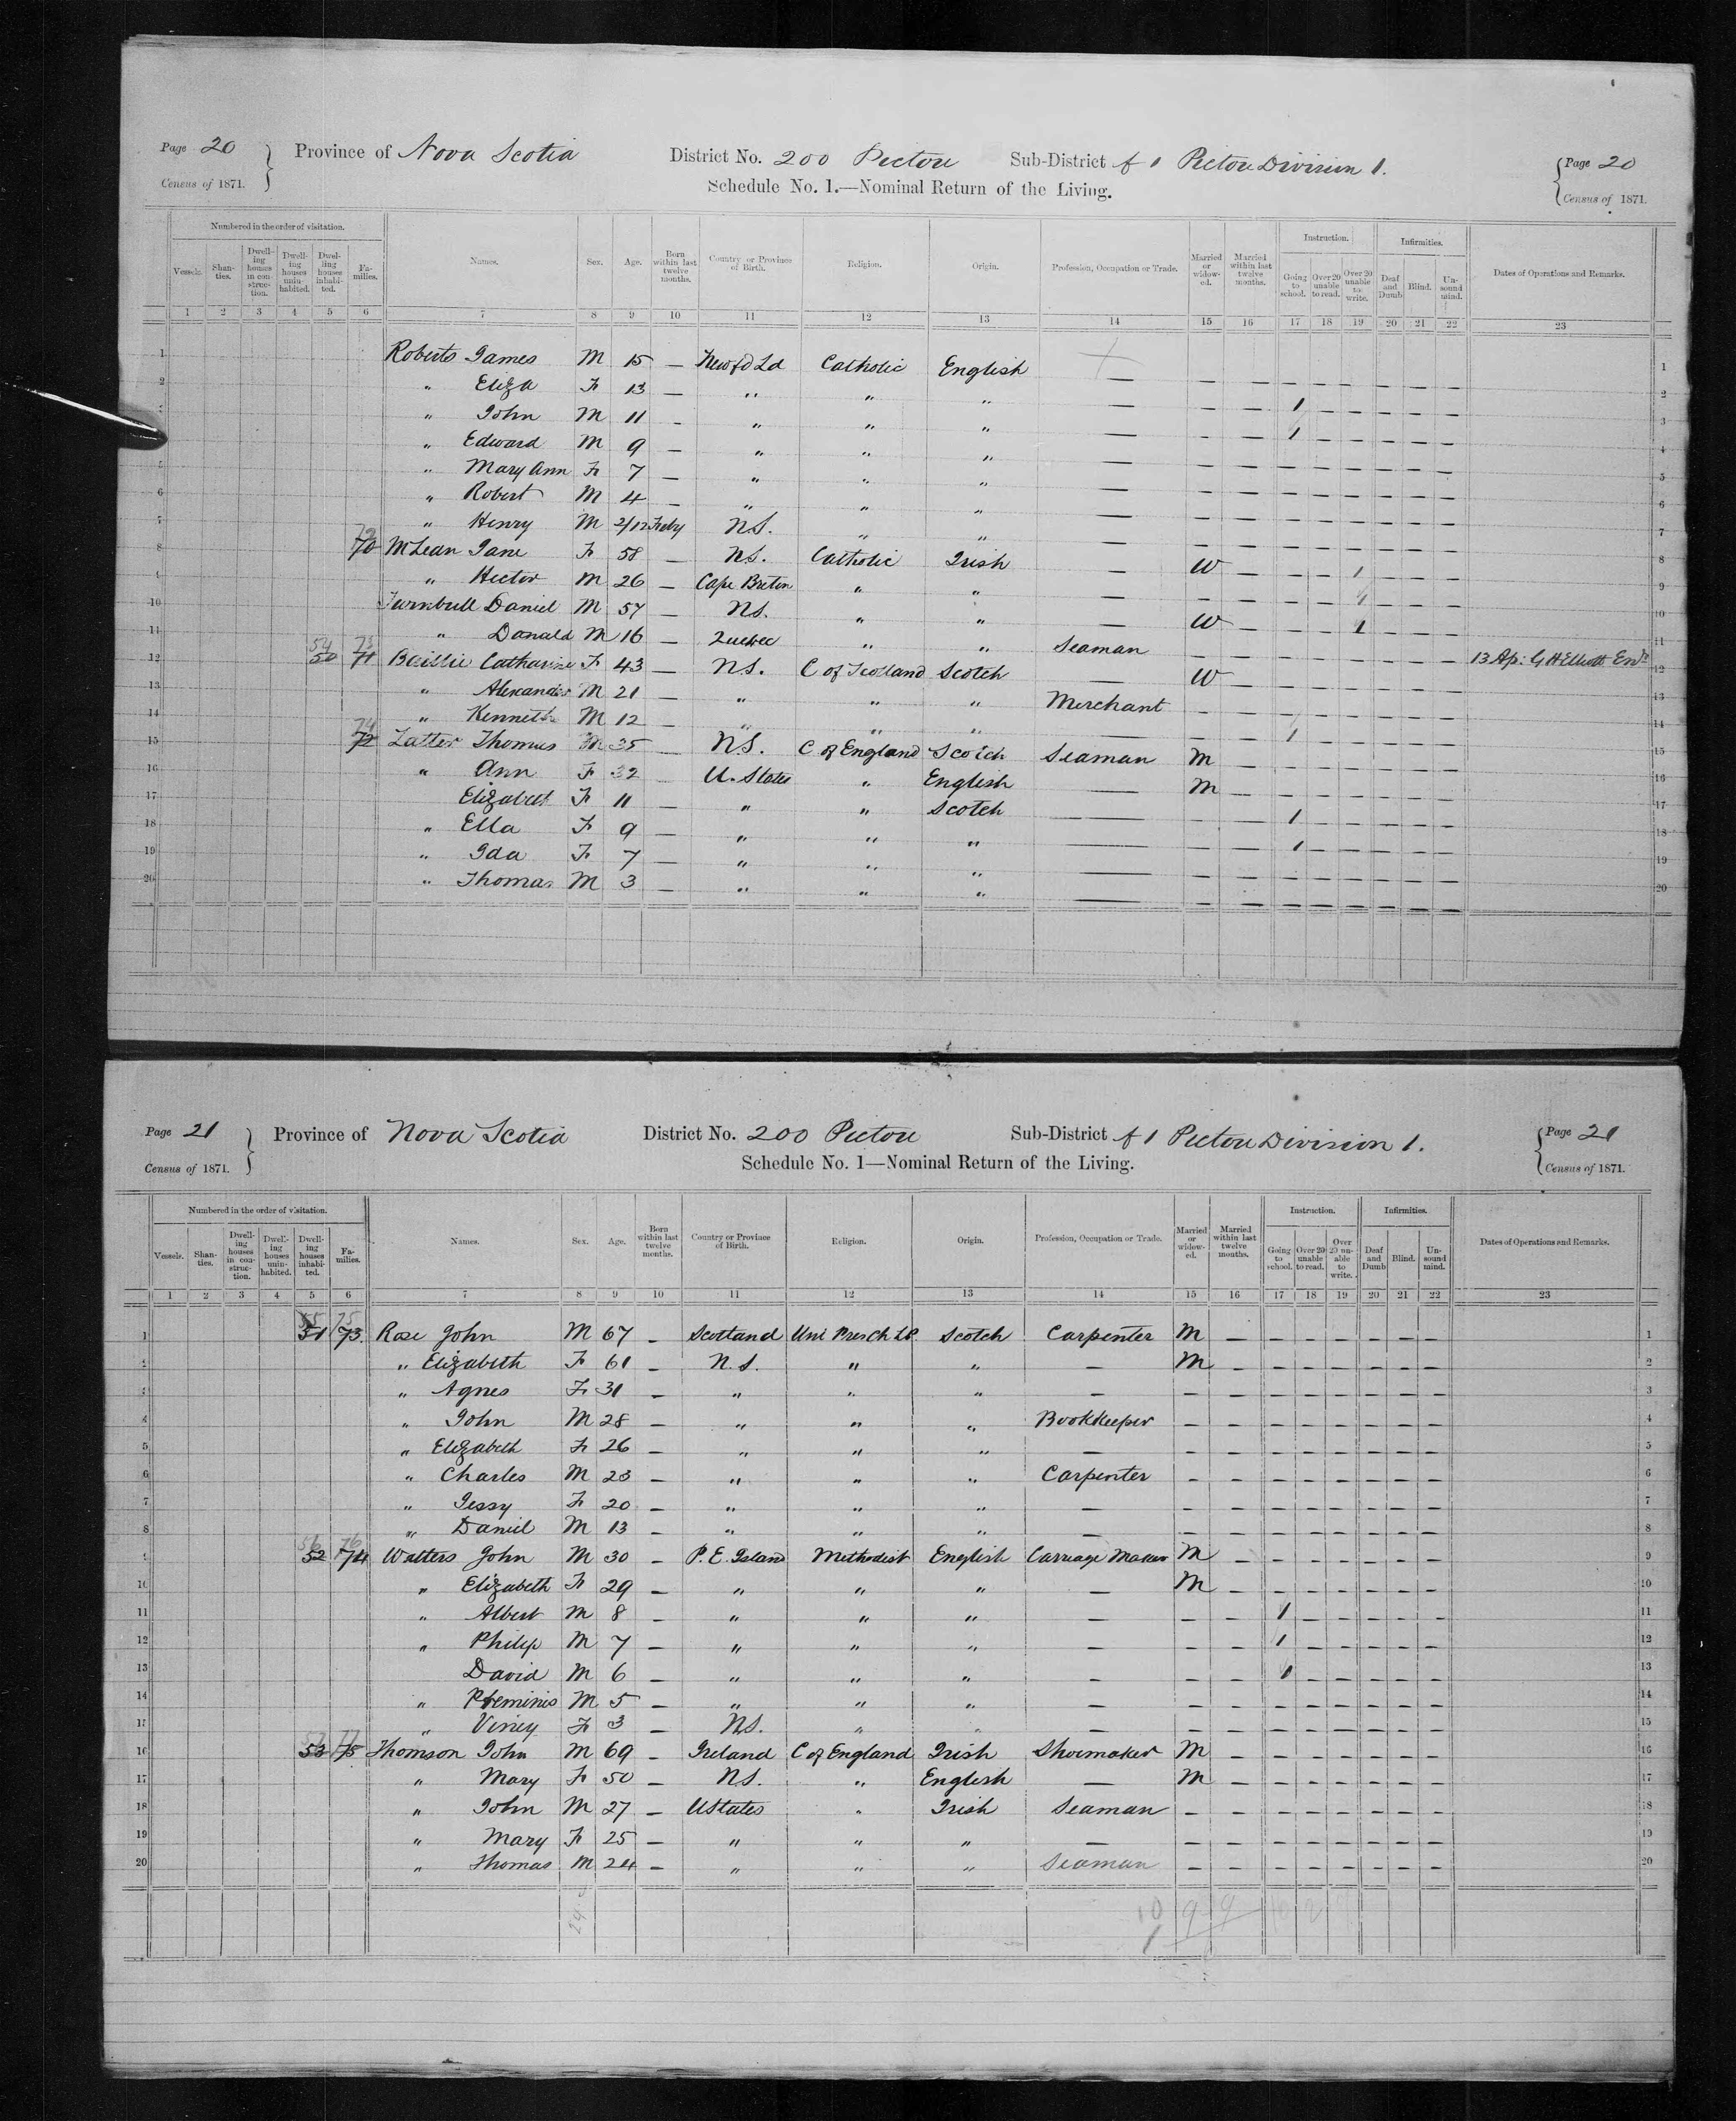 Page 20 Province of Nova Scotia District No. 200 Pictou Sub-District A 1 Pictou Division 1. Page 20
Census of 1871. Schedule No. 1.—Nominal Return of the Living. Census of 1871.
Numbered in the order of visitation. Instruction. Infirmities.
Vessels. Shanties. Dwelling houses in construction. Dwelling houses uninhabited. Dwelling houses inhabited. Families. Names. Sex. Age. Born within last twelve months. Country or Province of Birth. Religion. Origin. Profession, Occupation or Trade. Married or widowed. Married within last twelve months. Going to school. Over 20 unable to read. Over 20 unable to write. Deaf and Dumb Blind. Unsound mind. Dates of Operations and Remarks.
1 2 3 4 5 6 7 8 9 10 11 12 13 14 15 16 17 18 19 20 21 22 23
1 Roberts James M 15 — Newfd Ld Catholic English — — — — — — — — 1
2 " Eliza F 13 — " " " — — — — — — — — 2
3 " John M 11 - " " " — — — 1 — — — — — 3
4 " Edward M 9 — " " " — — — 1 — — — — — 4
5 " Mary Ann F 7 — " " " — — — — — — — — — 5
6 " Robert M 4 — " " " — — — — — — — — — 6
7 " Henry M 2/12 Feby N.S. " " — — — — — — — — — 7
8 72 70 McLean Jane F 58 — N.S. Catholic Irish — W — — — 1 — — — 8
9 " Hector M 26 — Cape Breton " " — — — — — 1 — — — 9
10 Turnbull Daniel M 57 — N.S. " " — W — — — 1 — — — 10
11 " Donald M 16 — Quebec " " Seaman — — — — — — — — 11
12 54 50 73 71 Baillie Catharine F 43 — N.S. C of Scotland Scotch — W — — — — — — — 13 Ap: G H Elliott Enr 12
13 " Alexander M 21 — " " " Merchant — — — — — — — — 13
14 " Kenneth M 12 — " " " — — — 1 — — — — — 14
15 74 72 Latter Thomas M 35 — N.S. C of England Scotch Seaman M — — — — — — — 15
16 " Ann F 32 — U. States " English — M — — — — — — — 16
17 Elizabeth F 11 — " " Scotch — — — 1 — — — — — 17
18 " Ella F 9 — " " " — — — 1 — — — — — 18
19 " Ida F 7 — " " " — — — — — — — — — 19
20 " Thomas M 3 — " " " — — — — — — — — — 20
Page 21 Province of Nova Scotia District No. 200 Pictou Sub-District A 1 Pictou Division 1. Page 21
Census of 1871. Schedule No. 1—Nominal Return of the Living. Census of 1871.
Numbered in the order of visitation. Instruction. Infirmities.
Vessels. Shanties. Dwelling houses in construction. Dwelling houses uninhabited. Dwelling houses inhabited. Families. Names. Sex. Age. Born within last twelve months. Country or Province of Birth. Religion. Origin. Profession, Occupation or Trade. Married or widowed. Married within last twelve months. Going to school. Over 20 unable to read. Over 20 unable to write. Deaf and Dumb Blind. Unsound mind. Dates of Operations and Remarks.
1 2 3 4 5 6 7 8 9 10 11 12 13 14 15 16 17 18 19 20 21 22 23
1 55 51 75 73 Rose John M 67 - Scotland Uni Presch L P. Scotch Carpenter M — — — — — — — 1
2 " Elizabeth F 61 - N.S. " " — M — — — — — — — 2
3 " Agnes F 31 - " " " — — — — — — — — — 3
4 " John M 28 - " " " Bookkeeper — — — — — — — — 4
5 " Elizabeth F 26 - " " " — — — — — — — — — 5
6 " Charles M 23 - " " " Carpenter — — — — — — — — 6
7 " Jessy F 20 - " " " — — — — — — — — — 7
8 " Daniel M 13 - " " " — — — — — — — — — 8
9 56 52 76 74 Walters John M 30 - P. E. Island Methodist English Carriage Maker M — — — — — — — 9
10 " Elizabeth F 29 - " " " — M — — — — — — — 10
11 " Albert M 8 - " " " — — — 1 — — — — — 11
12 " Philip M 7 - " " " — — — 1 — — — — — 12
13 David M 6 - " " " — — — 1 — — — — — 13
14 " M 5 - " " " — — — — — — — — — 14
15 " Viney F 3 - N.S. " " — — — — — — — — — 15
16 53 77 75 Thomson John M 69 - Ireland C of England Irish Shoemaker M — — — — — — — 16
17 " Mary F 50 - N.S. " English — M — — — — — — — 17
18 " John M 27 - U States " Irish Seaman — — — — — — — — 18
19 " Mary F 25 - " " " — — — — — — — — — 19
20 " Thomas M 24 - " " " Seaman — — — — — — — — 20